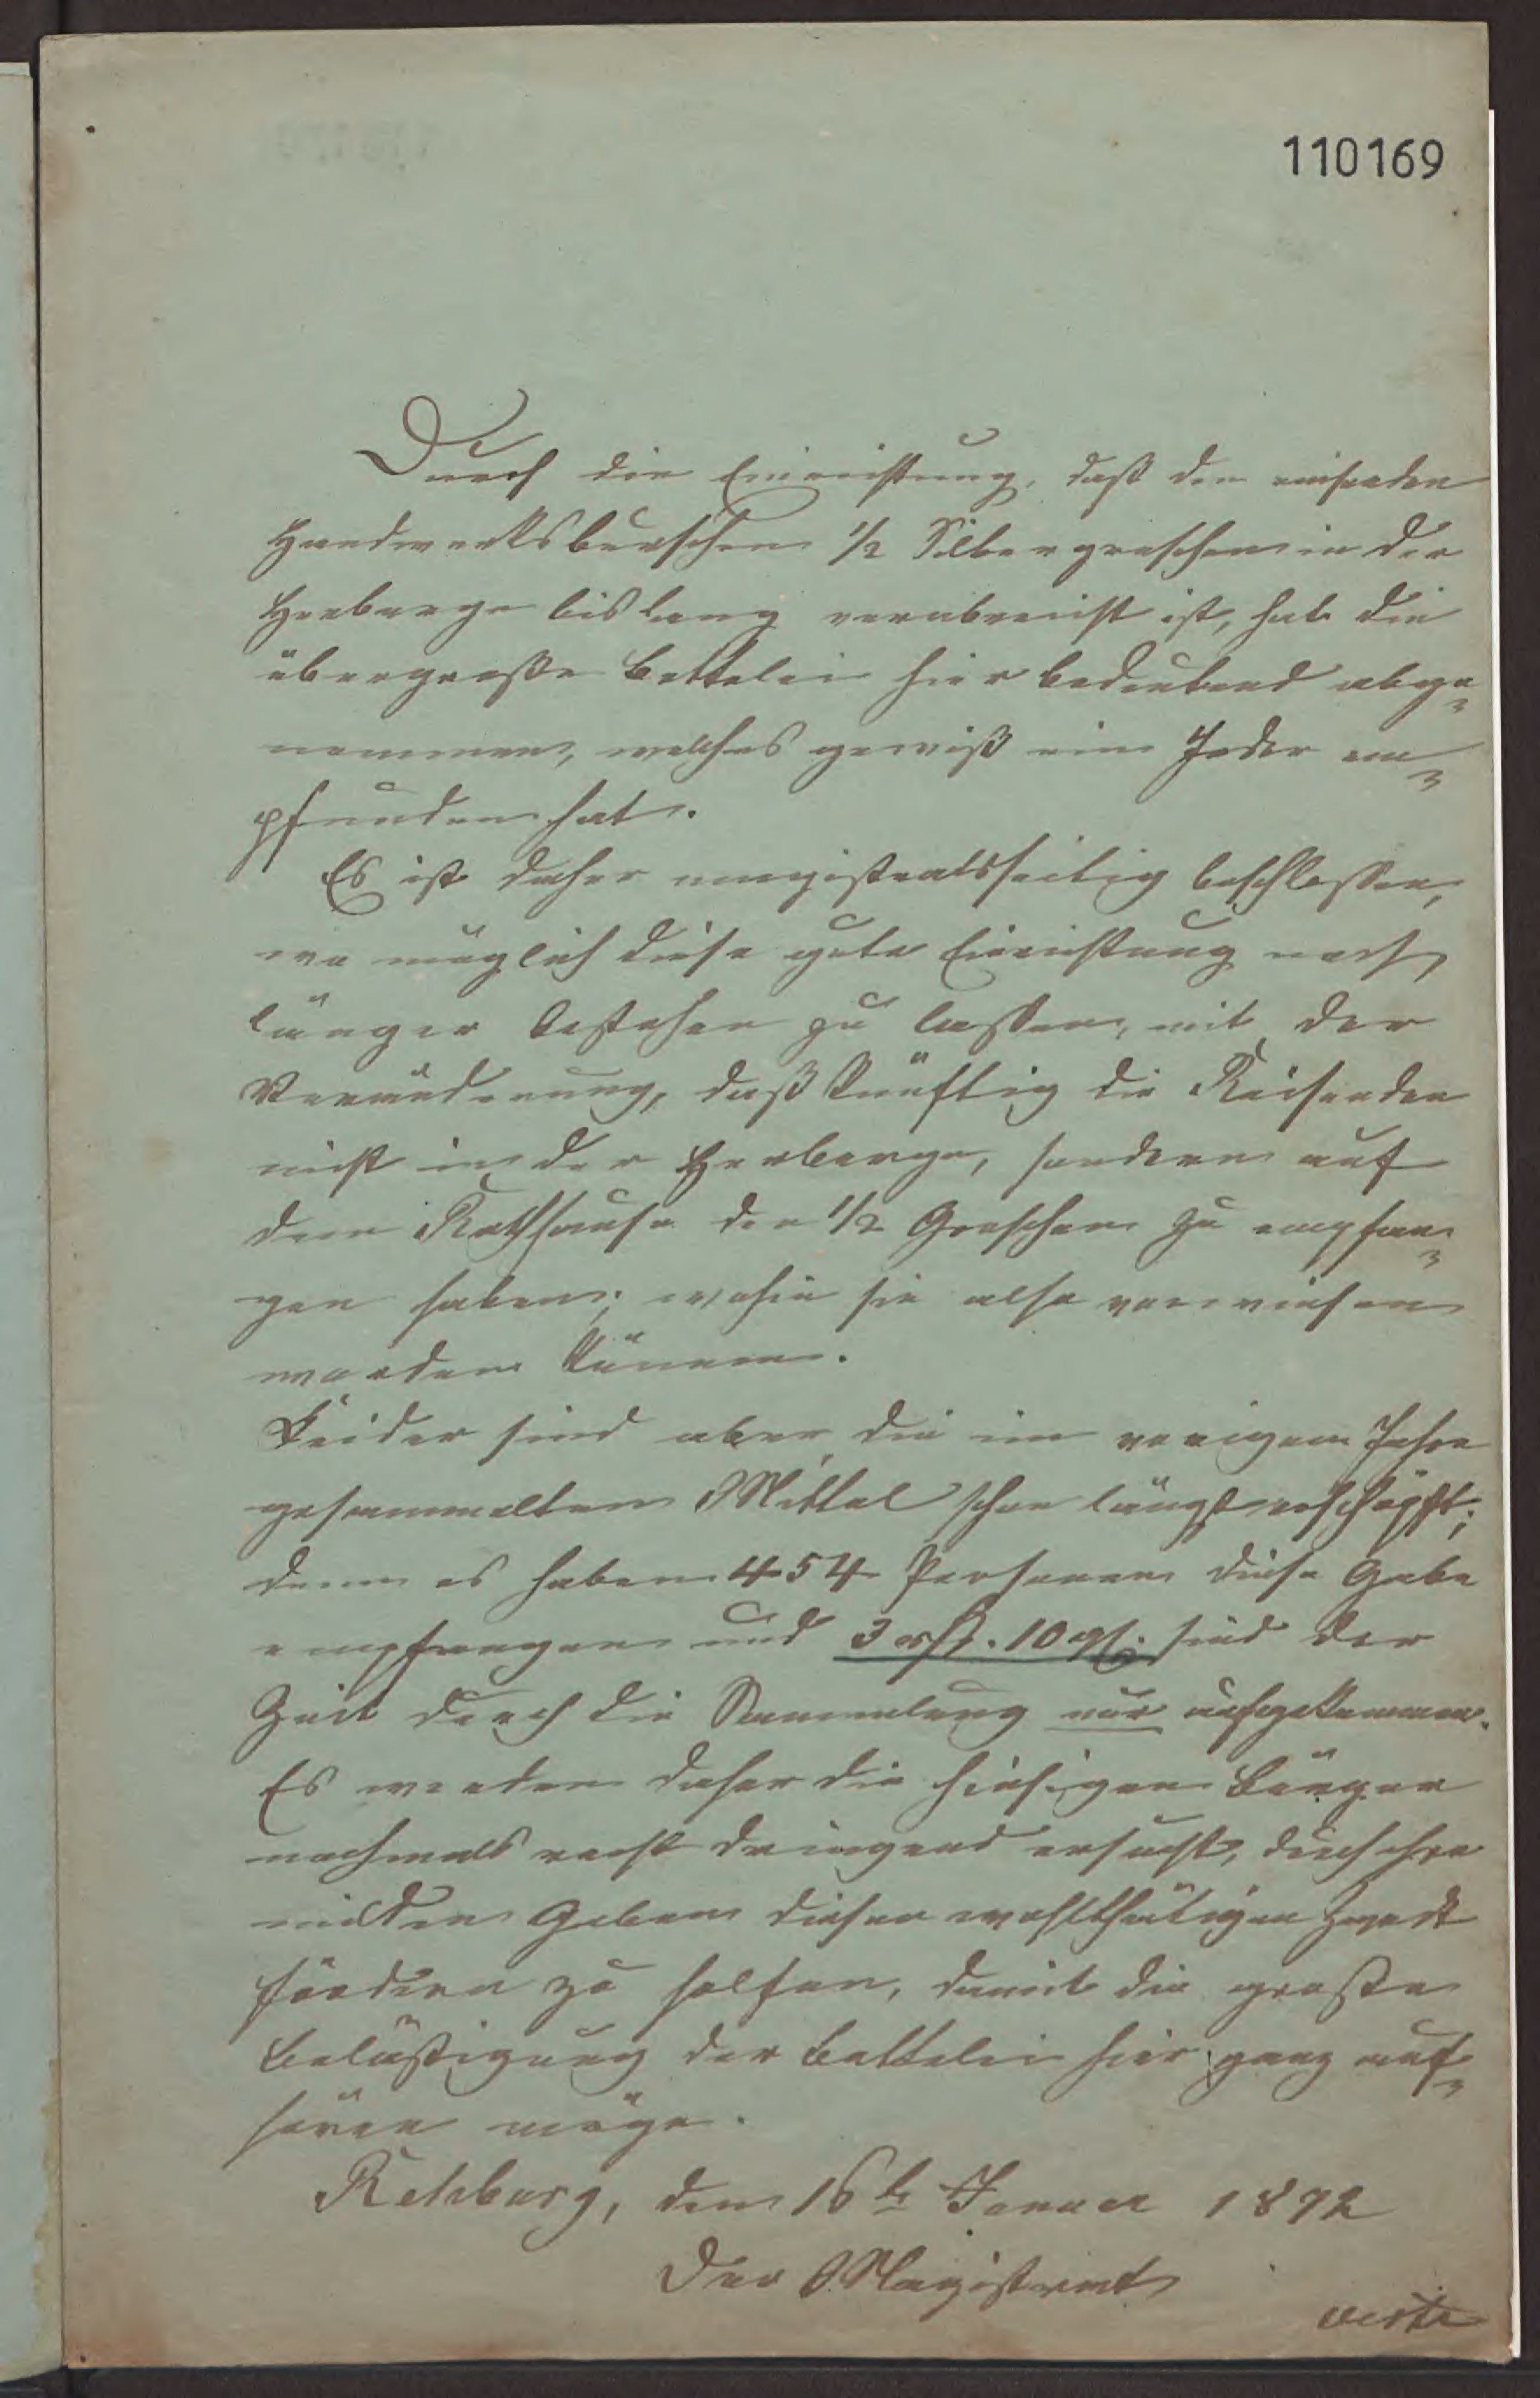 110169
Durch die Einrichtung, daß den reisenden
Handwerksburschen 1/2 Silbergroschen in der
Herberge bislang verabreicht ist, hat die
übergroße Bettelei hier bedeutend abge-
nommen, welches gewiß ein Jeder em-
pfunden hat.
Es ist daher magistratsseitig beschlossen,
wo möglich diese gute Einrichtung noch
länger bestehen zu lassen, mit der
Veränderung, daß künftig die Reisenden
nicht in der Herberge, sondern auf
dem Rathhause den 1/2 Groschen zu empfan-
gen haben; wohin sie also verwiesen
werden können.
Leider sind aber die im vorigen Jahre
gesammelten Mittel schon längst erschöpft;
denn es haben 454 Personen diese Gabe
empfangen und 3 rth. 10 gr. sind der
Zeit durch die Sammlung nur aufgekommen.
Es werden daher die hiesigen Bürger
nochmals recht dringend ersucht, durch ihre
milden Gaben diesen wohlthätigen Zweck
fördern zu helfen, damit die große
Belästigung der Bettelei hier ganz auf-
hören möge.
Rehburg, den 16t Januar 1872
Der Magistrat